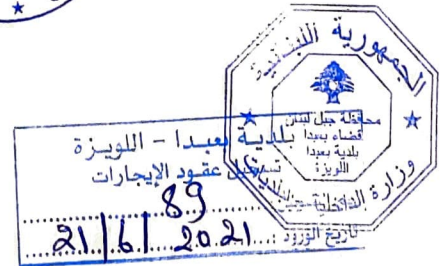 الجمهورية اللبنانية
محافظة جبل لبنان
قضاء بعبدا
بلدية بعبدا
اللويزة
وزارة الداخلية
بلدية بعبدا - اللويزة
تسجيل عقود الإيجارات
89
تاريخ الورود: 21/6/2021